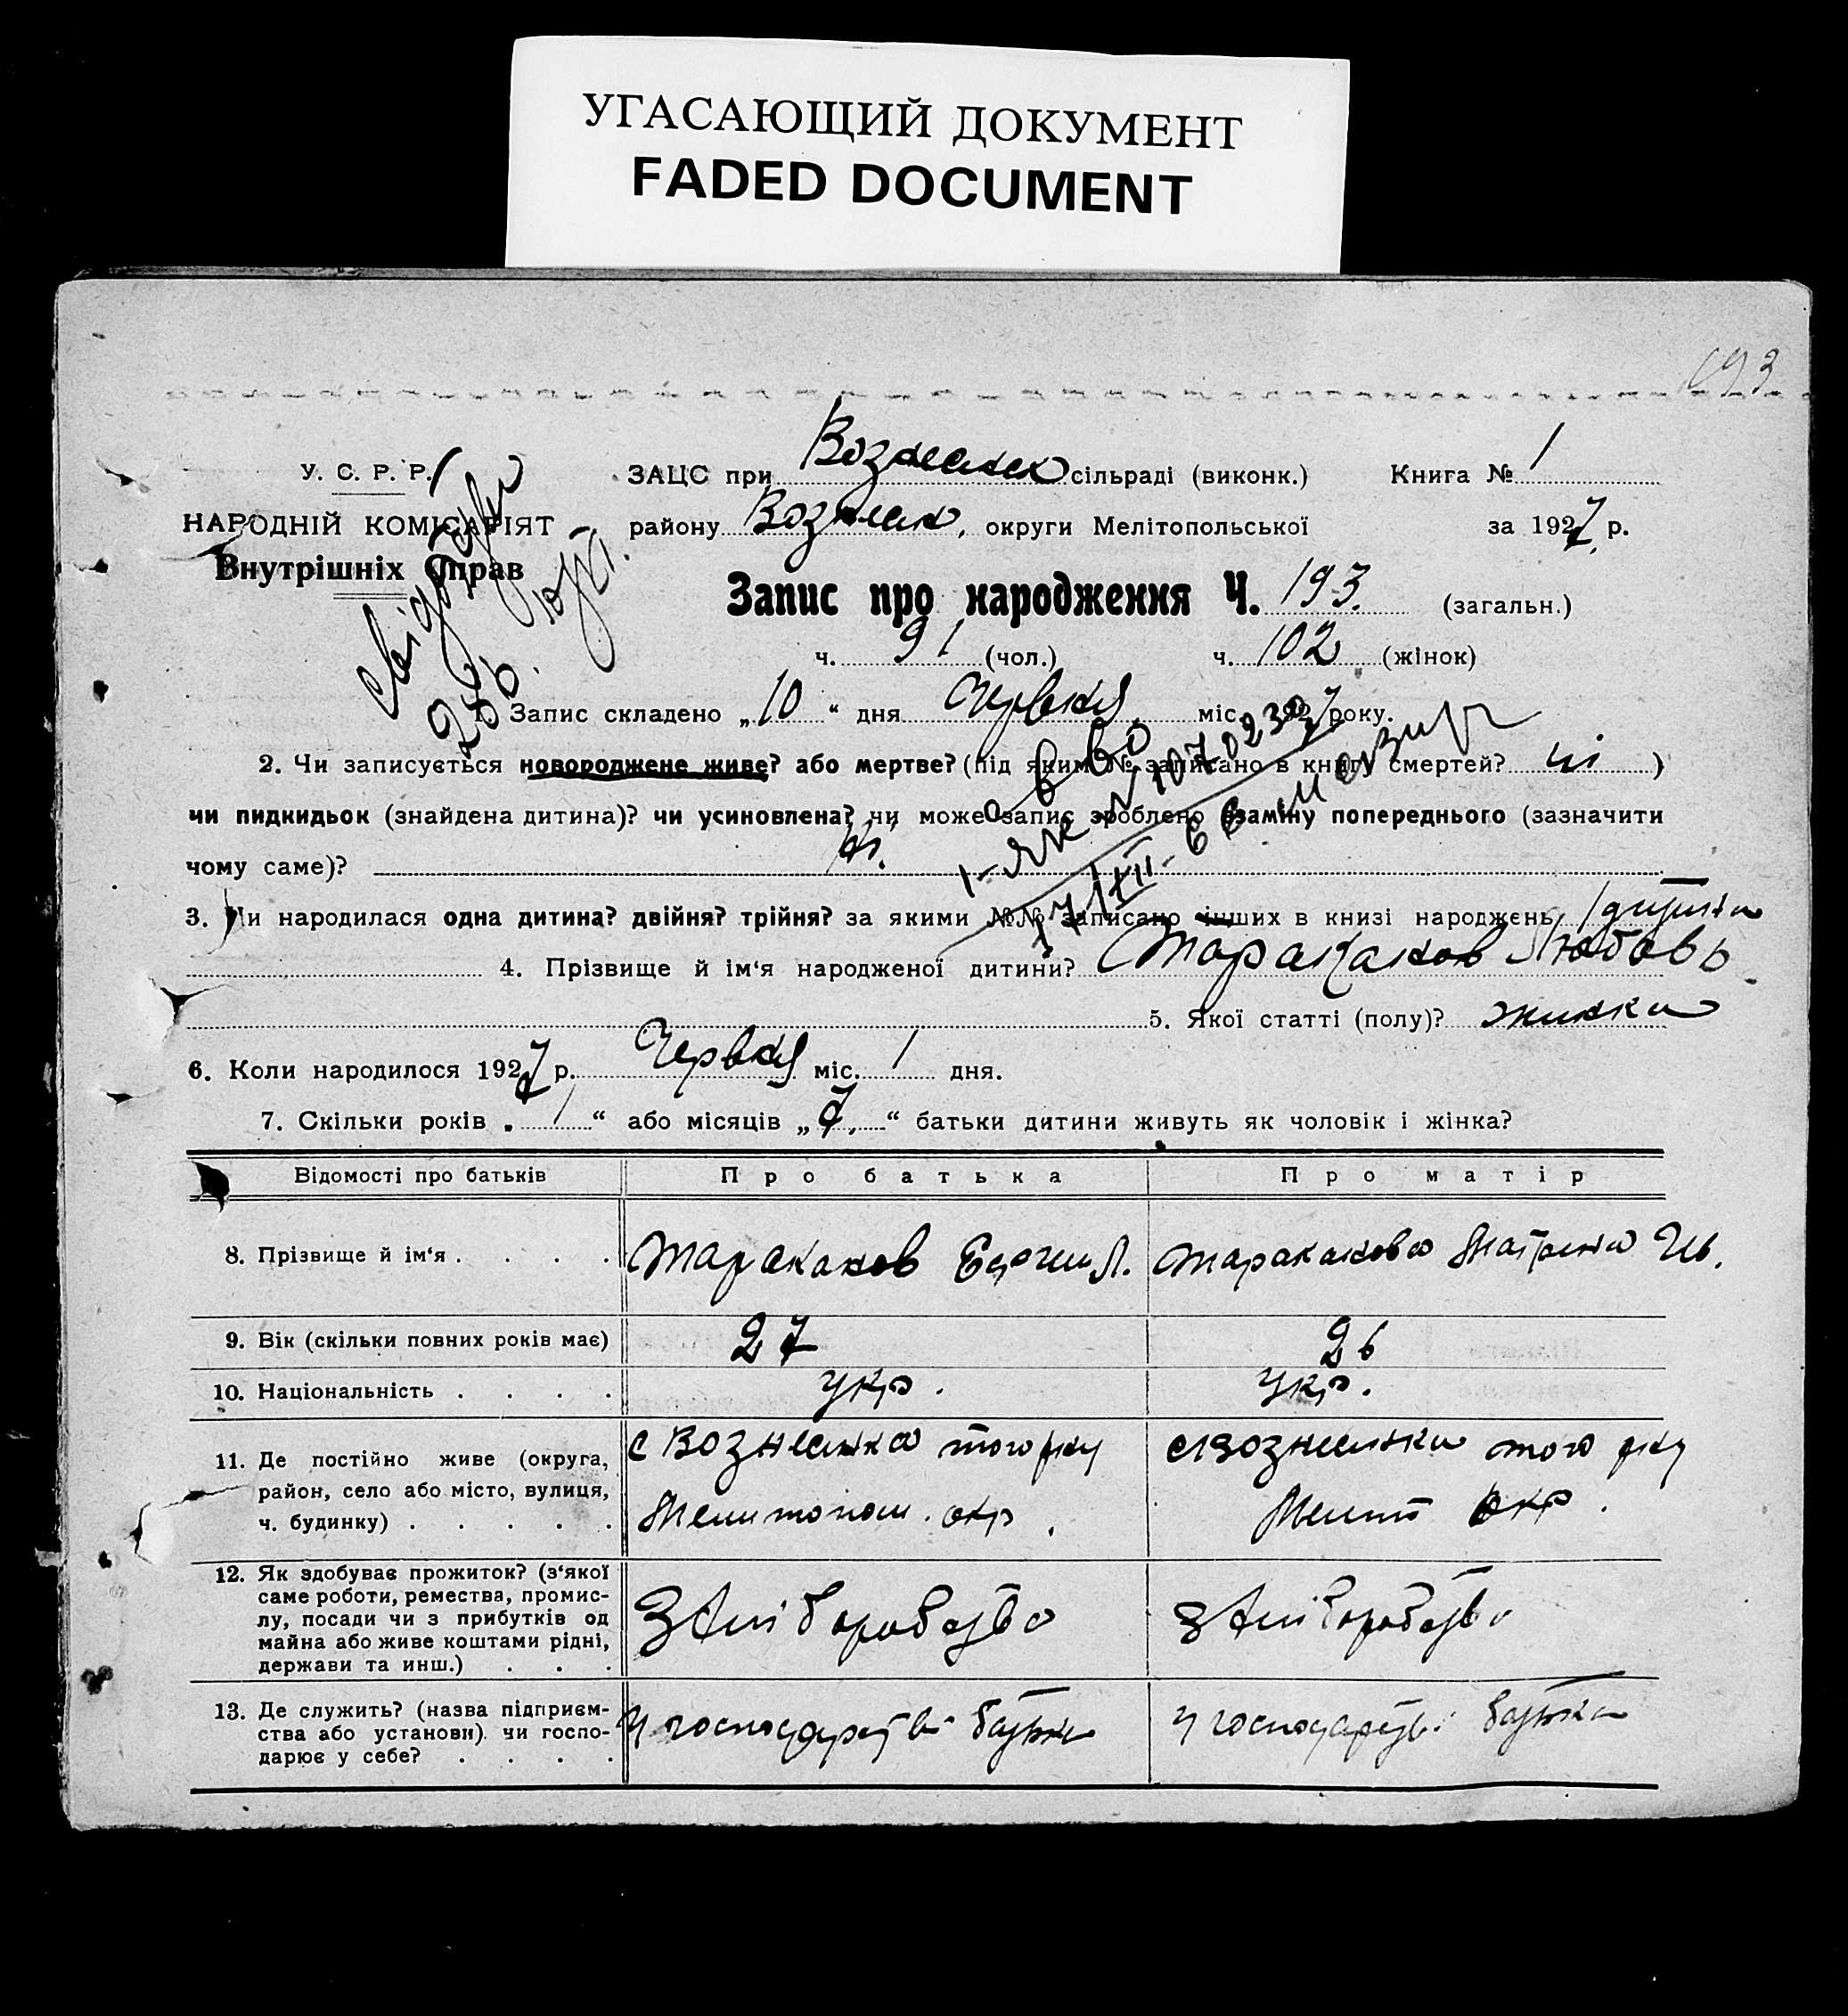 УГАСАЮЩИЙ ДОКУМЕНТ
FADED DOCUMENT
193
У. С. Р. Р.
НАРОДНІЙ КОМІСАРІЯТ
Внутрішніх Справ
ЗАЦС при Вознесенск сільраді (виконк.) Книга № 1
району Вознесен, округи Мелітопольської за 1927 р.
Запис про народження Ч. 193. (загальн.)
ч. 91 (чол.) ч. 102 (жінок)
1. Запис складено „10“ дня Червня міс. 1927 року.
2. Чи записується новороджене живе? або мертве? (під яким № записано в книгу смертей? ні )
чи пидкидьок (знайдена дитина)? чи усиновлена? чи може запис зроблено взаміну попереднього (зазначити
чому саме)? ні.
3. Чи народилася одна дитина? двійня? трійня? за якими №№ записано інших в книзі народжень 1 дитина
4. Прізвище й ім‘я народженої дитини? Тараканов Любовь
5. Якої статті (полу)? жинка
6. Коли народилося 1927 р. Червня міс. 1 дня.
7. Скільки років „1“ або місяців „7,“ батьки дитини живуть як чоловік і жінка?
Відомості про батьків Про батька Про матір
8. Прізвище й ім‘я . . . . Тараканов Л. Тараканова Матрона Ив.
9. Вік (скільки повних років має) 27 26
10. Національність . . . . укр. укр.
11. Де постійно живе (округа, с Вознесенка того рку с Вознесенка того рку
район, село або місто, вулиця, Мелитопол. окр. Мелит окр.
ч. будинку) . . . . .
12. Як здобуває прожиток? (з‘якої
саме роботи, ремества, промис-
лу, посади чи з прибутків од Хліборобство Хліборобство
майна або живе коштами рідні,
держави та инш.) . . .
13. Де служить? (назва підприєм- у господарстві батька у господарстві батька
ства або установи) чи госпо-
дарює у себе? . . . .